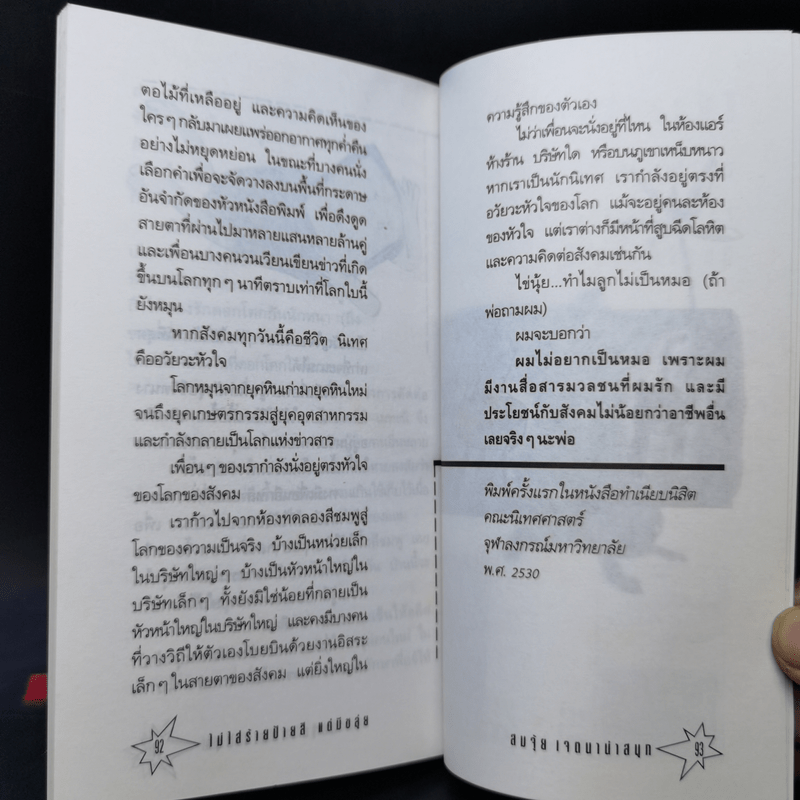 ตอไม้ที่เหลืออยู่ และความคิดเห็นของ
ใครๆ กลับมาเผยแพร่ออกอากาศทุกค่ำคืน
อย่างไม่หยุดหย่อน ในขณะที่บางคนนั่ง
เลือกคำเพื่อจะจัดวางลงบนพื้นที่กระดาษ
อันจำกัดของหัวหนังสือพิมพ์ เพื่อดึงดูด
สายตาที่ผ่านไปมาหลายแสนหลายล้านคู่
และเพื่อนบางคนวนเวียนเขียนข่าวที่เกิด
ขึ้นบนโลกทุกๆ นาทีตราบเท่าที่โลกใบนี้
ยังหมุน
หากสังคมทุกวันนี้คือชีวิต นิเทศ
คืออวัยวะหัวใจ
โลกหมุนจากยุคหินเก่ามายุคหินใหม่
จนถึงยุคเกษตรกรรมสู่ยุคอุตสาหกรรม
และกำลังกลายเป็นโลกแห่งข่าวสาร
เพื่อนๆ ของเรากำลังนั่งอยู่ตรงหัวใจ
ของโลกของสังคม
เราก้าวไปจากห้องทดลองสีชมพูสู่
โลกของความเป็นจริง บ้างเป็นหน่วยเล็ก
ในบริษัทใหญ่ๆ บ้างเป็นหัวหน้าใหญ่ใน
บริษัทเล็กๆ ทั้งยังมิใช่น้อยที่กลายเป็น
หัวหน้าใหญ่ในบริษัทใหญ่ และคงมีบางคน
ที่วางวิถีให้ตัวเองโบยบินด้วยงานอิสระ
เล็กๆ ในสายตาของสังคม แต่ยิ่งใหญ่ใน
92 ไม่ใส่ร้ายป้ายสี แต่มีอสุ่ย
ความรู้สึกของตัวเอง
ไม่ว่าเพื่อนจะนั่งอยู่ที่ไหน ในห้องแอร์
ห้างร้าน บริษัทใด หรือบนภูเขาเหน็บหนาว
หากเราเป็นนักนิเทศ เรากำลังอยู่ตรงที่
อวัยวะหัวใจของโลก แม้จะอยู่คนละห้อง
ของหัวใจ แต่เราต่างก็มีหน้าที่สูบฉีดโลหิต
และความคิดต่อสังคมเช่นกัน
ไข่นุ้ย...ทำไมลูกไม่เป็นหมอ (ถ้า
พ่อถามผม)
ผมจะบอกว่า
ผมไม่อยากเป็นหมอ เพราะผม
มีงานสื่อสารมวลชนที่ผมรัก และมี
ประโยชน์กับสังคมไม่น้อยกว่าอาชีพอื่น
เลยจริงๆ นะพ่อ
พิมพ์ครั้งแรกในหนังสือทำเนียบนิสิต
คณะนิเทศศาสตร์
จุฬาลงกรณ์มหาวิทยาลัย
พ.ศ. 2530
สมจุ้ย เจตนาน่าสนุก 93